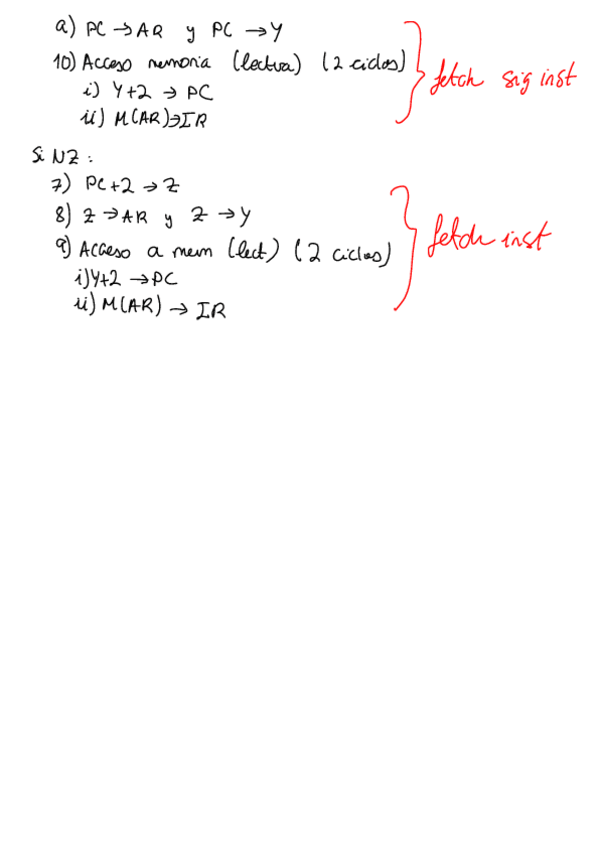 a) PC → AR y PC → Y
10) Acceso memoria (lectura) (2 ciclos)
i) Y+2 → PC
ii) M(AR) → IR
fetch sig inst
Si NZ :
7) PC+2 → Z
8) Z → AR y Z → Y
9) Acceso a mem (lect) (2 ciclos)
i) Y+2 → PC
ii) M(AR) → IR
fetch inst